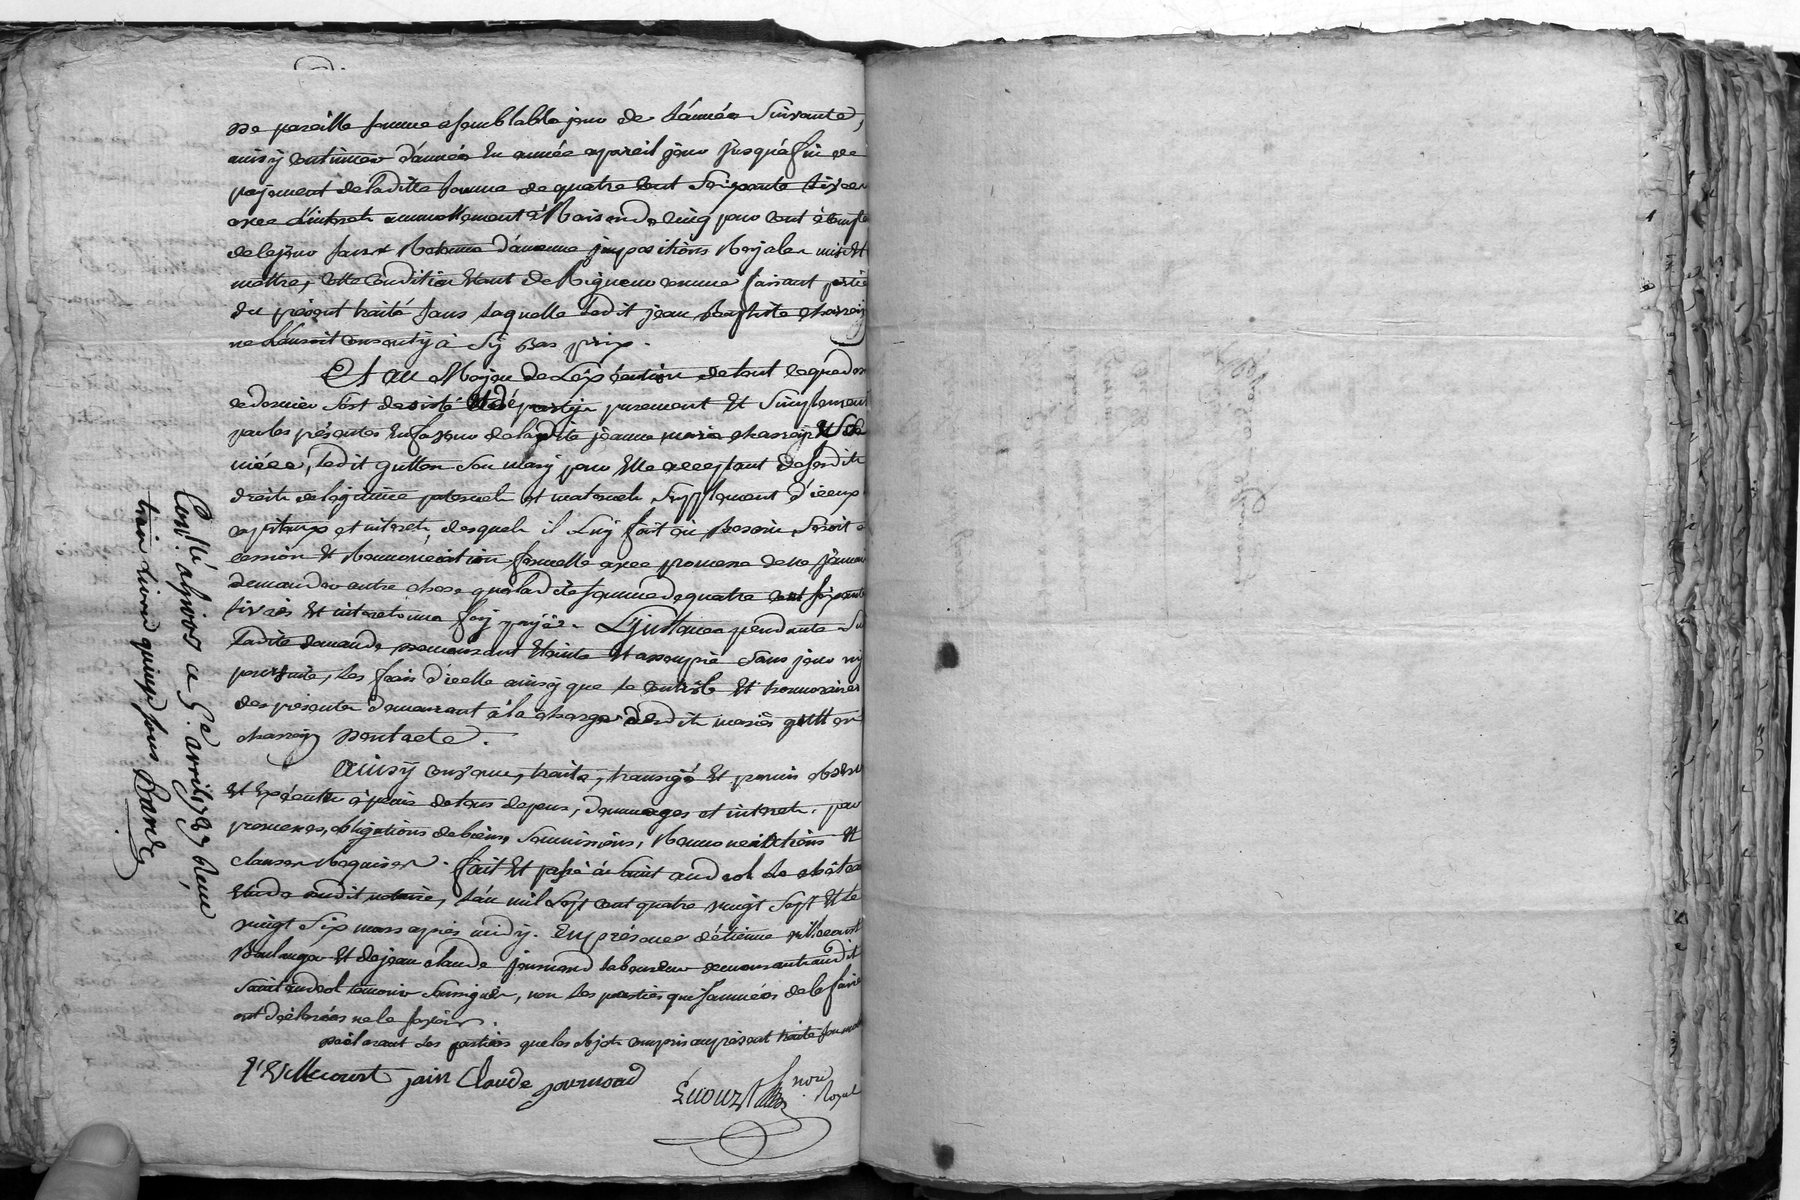 De pareille somme a semblable jour de L'année Suivante,
ainsy continuer d'année En année a pareil jour jusqu'a fin de
payement de laditte somme de quatre cent Soixante livres
avec L'interet annuellement a Raison de cinq pour cent à compter
de ce jour sans Retenue d'aucune impositions Royales mises Et
mettre, cette Condition Etant de Rigueur comme faisant partie
du présent traité sans laquelle Ledit jean Baptiste charreiy
ne L'auroit consenty à Sy Bas prix.
Et au Moyen de L'exécution de tout ce que dessus
ce dernier s'est desisté Et départy purement Et Simplement
par les présentes En faveur de laditte jeanne marie charreiy Sa
niéce, Ledit gutton Son mary pour Elle acceptant de sesdits
droits de légitime paternels et maternels Supplement d'iceux
capitaux et interets, desquels il Luy fait au Besoin,
cession Et Renonciation formelle avec promesse de ne jamais
demander autre chose que laditte somme de quatre cent soixante
livres Et interets une fois payée. L'instance pendante Sur
Ladite demande demeurant Eteinte Et assoupie Sans jour ny
poursuite, Les frais d'icelle ainsy que le contrôle Et honnoraires
des présentes demeurant à la charge desdits mariés gutton
charreiy Dont acte.
Ainsy convenu, traité, transigé Et promis observer
Et Exécuter à peine de tous depens, dommages et interets, par
promesses, obligations de biens, Soumissions, Renonciations Et
clauses Requises. fait Et passé à Saint andeol Le château
Etude dudit notaire, L'an mil Sept cent quatre vingt Sept Et le
vingt Six mars après midy. En présence d'étienne villecourt
Boulanger Et de jean claude journoud laboureur demeurant audit
Saint andeol temoins Soussignés, non Les parties qui sommées de le faire
ont déclarées ne le Savoir.
Déclarant Les parties que les objets compris au présent traité
E Villecourt jain Claude journoud
not.
Royal
Con.llé a givors ce 5.e avril 1787 Reçu
trois livres quinze sous